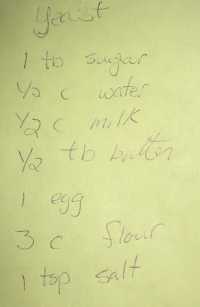 Yeast
1 tb sugar
1/2 c water
1/2 c milk
1/2 tb butter
1 egg
3 c flour
1 tsp salt